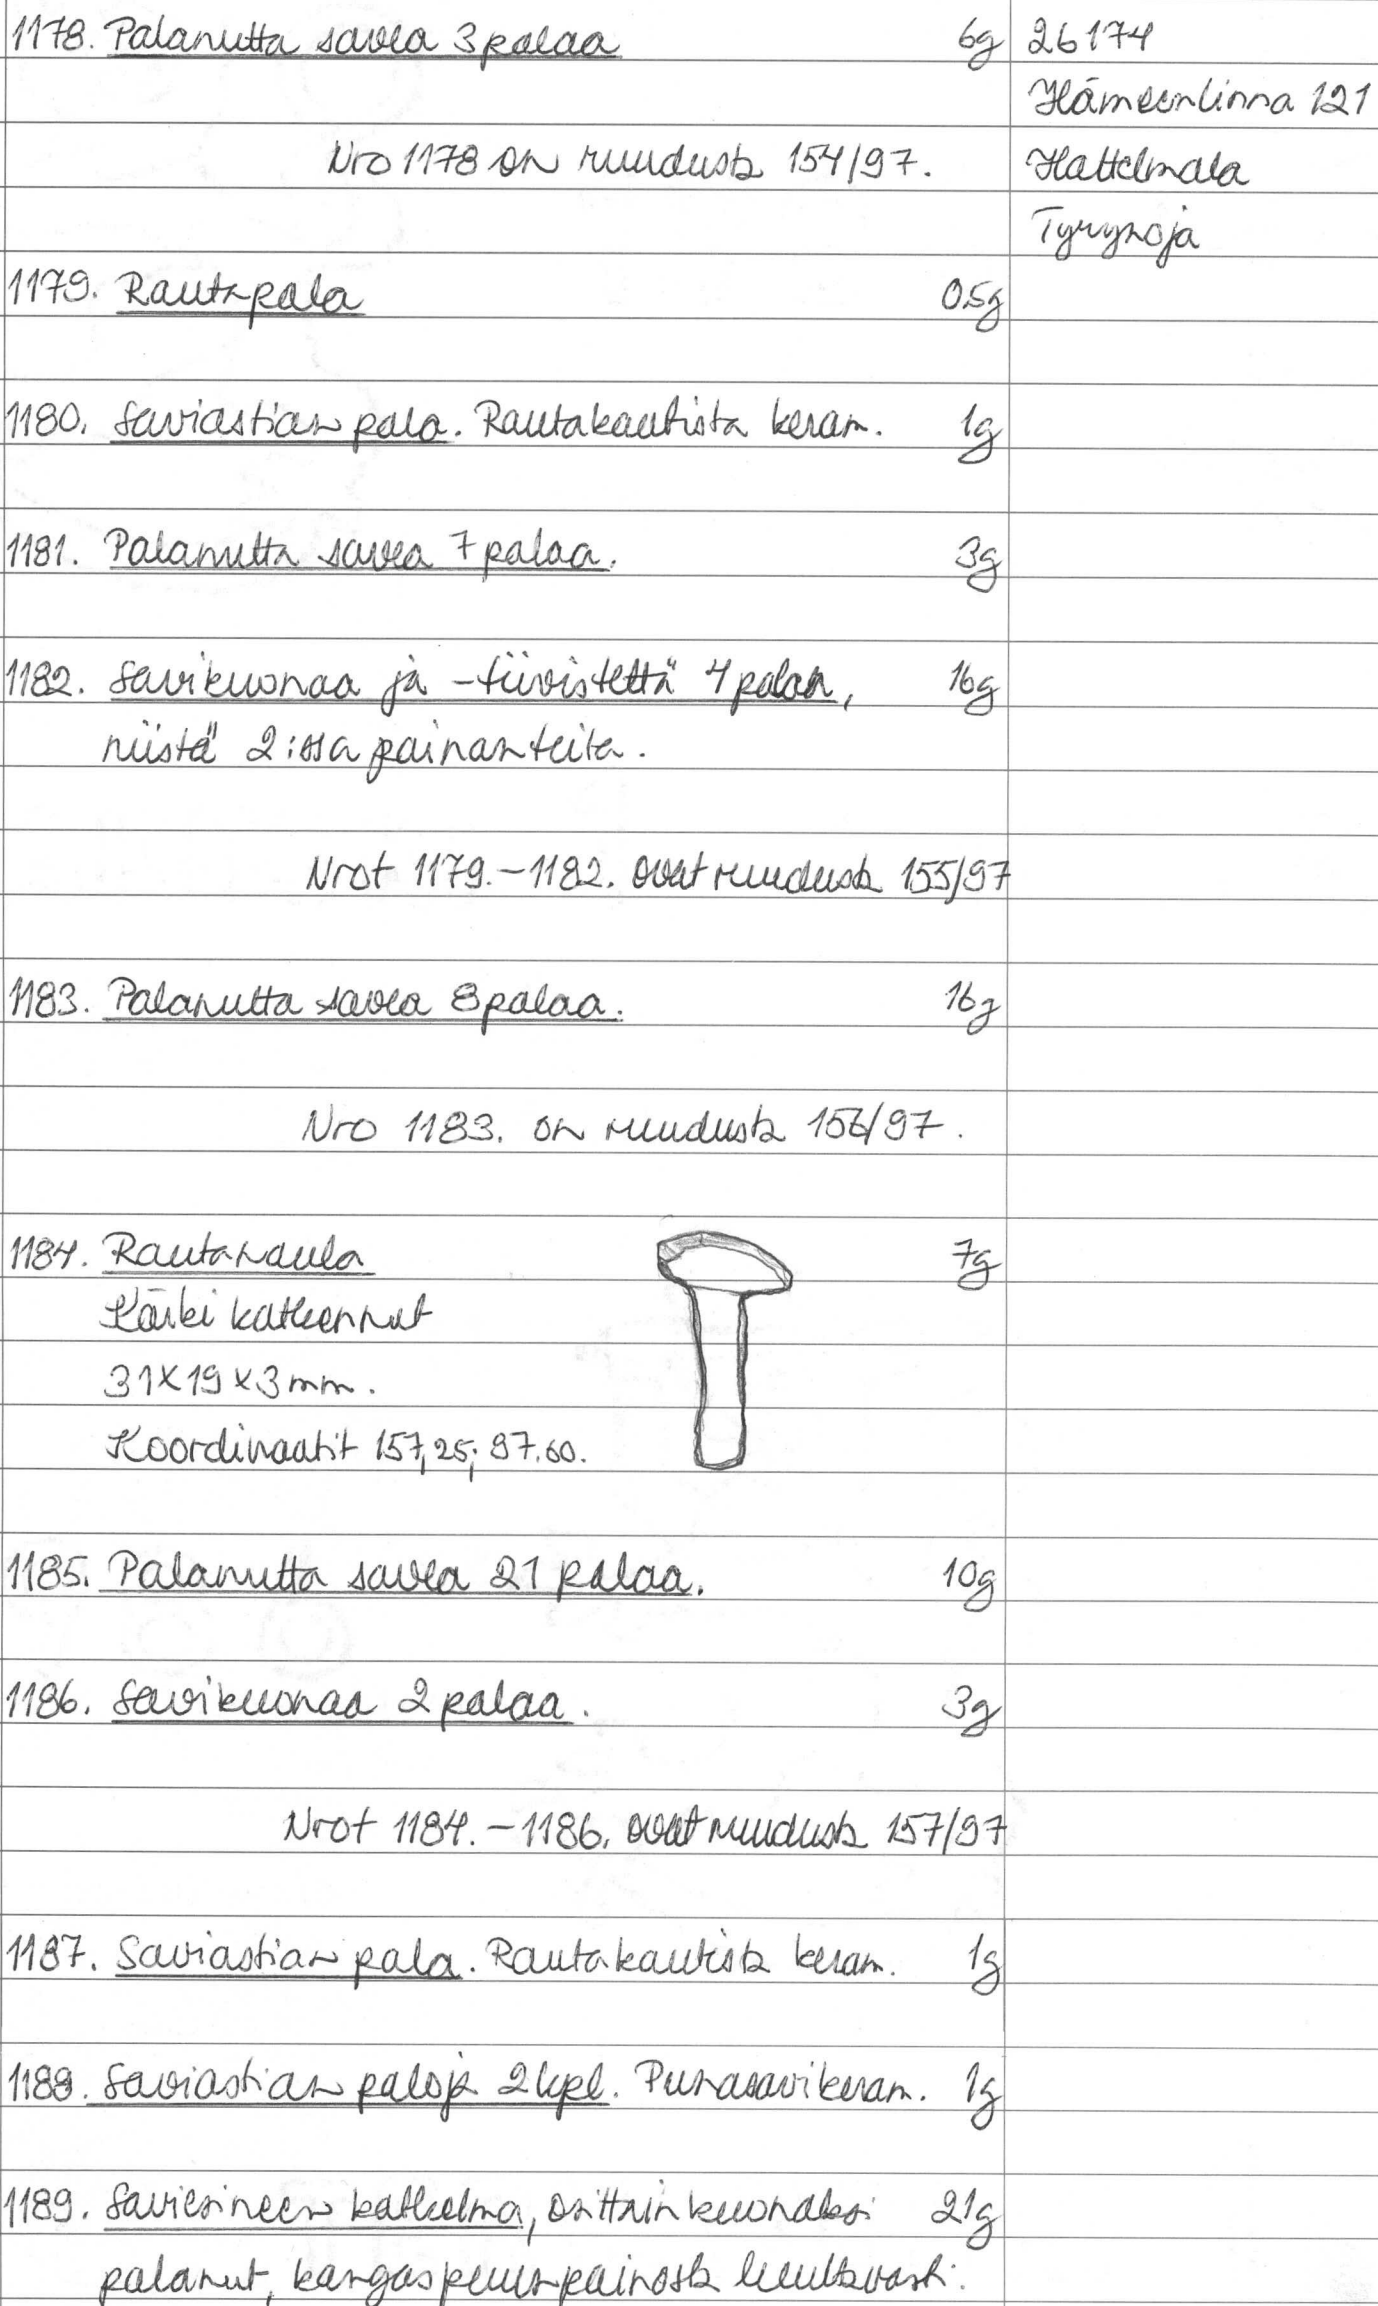 1178. Palanutta savea 3 palaa 6g 26174
Hämeenlinna 121
Nro 1178 on ruudusta 154/97. Hattelmala
Tyrynoja
1179. Rautapala 0.5g
1180. Saviastian pala. Rautakautista keram. 1g
1181. Palanutta savea 7 palaa. 3g
1182. Savikuonaa ja -tiivistettä 4 palaa, 16g
niistä 2:ssa painanteita.
Nrot 1179.-1182. ovat ruudusta 155/97
1183. Palanutta savea 8 palaa. 16g
Nro 1183. on ruudusta 156/97.
1184. Rautanaula 7g
Kärki katkennut
31x19x3mm.
Koordinaatit 157,25; 97.60.
1185. Palanutta savea 21 palaa. 10g
1186. Savikuonaa 2 palaa. 3g
Nrot 1184.-1186. ovat ruudusta 157/97
1187. Saviastian pala. Rautakautista keram. 1g
1188. Saviastian paloja 2 kpl. Punasavikeram. 1g
1189. Saviesineen katkelma, osittain kuonaksi 21g
palanut, kangaspuunpainosta luultavasti.